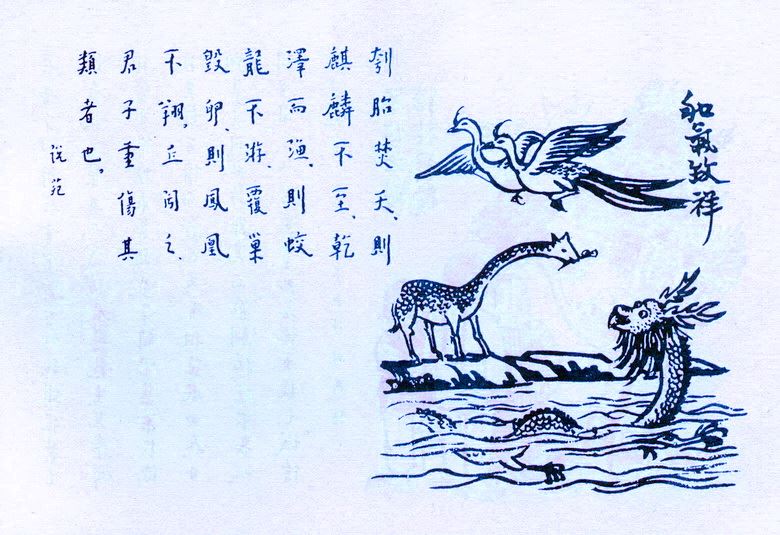 和氣致祥
刳胎焚夭、則
麒麟不至、乾
澤而漁、則蛟
龍不游、覆巢
毀卵、則鳳凰
不翔。丘聞之、
君子重傷其
類者也。
說苑